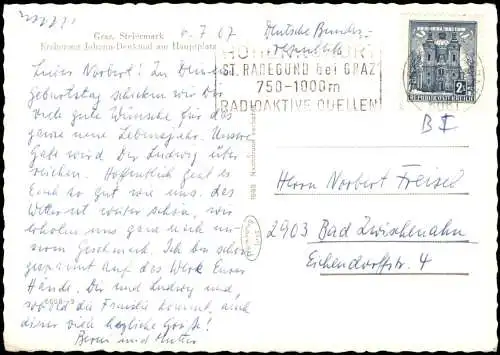 Graz, Steiermark
Erzherzog Johann-Denkmal am Hauptplatz
6.7.67
Deutsche Bundes-
republik
HÖHENLUFTKURORT
ST. RADEGUND bei GRAZ
750-1000m
RADIOAKTIVE QUELLEN
REPUBLIK ÖSTERREICH
B I
Lieber Norbert! Zu Deinem
Geburtstag schicken wir Dir
viele gute Wünsche für das
ganze neue Lebensjahr. Unsere
Gabe wird Dir Ludwig über
reichen. Hoffentlich geht es
Euch so gut wie uns. das
Wetter ist weiter schön, wir
erholen uns ganz nach un-
serm Geschmack. Ich bin schon
gespannt auf das Werk Eurer
Hände. Dir und Ludwig und,
wo bald die Familie kommt, auch
dieser viele herzliche Grüße!
und Mutter
Herrn Norbert
2903 Bad Zwischenahn
Eichendorffstr. 4
Nachdruck verboten